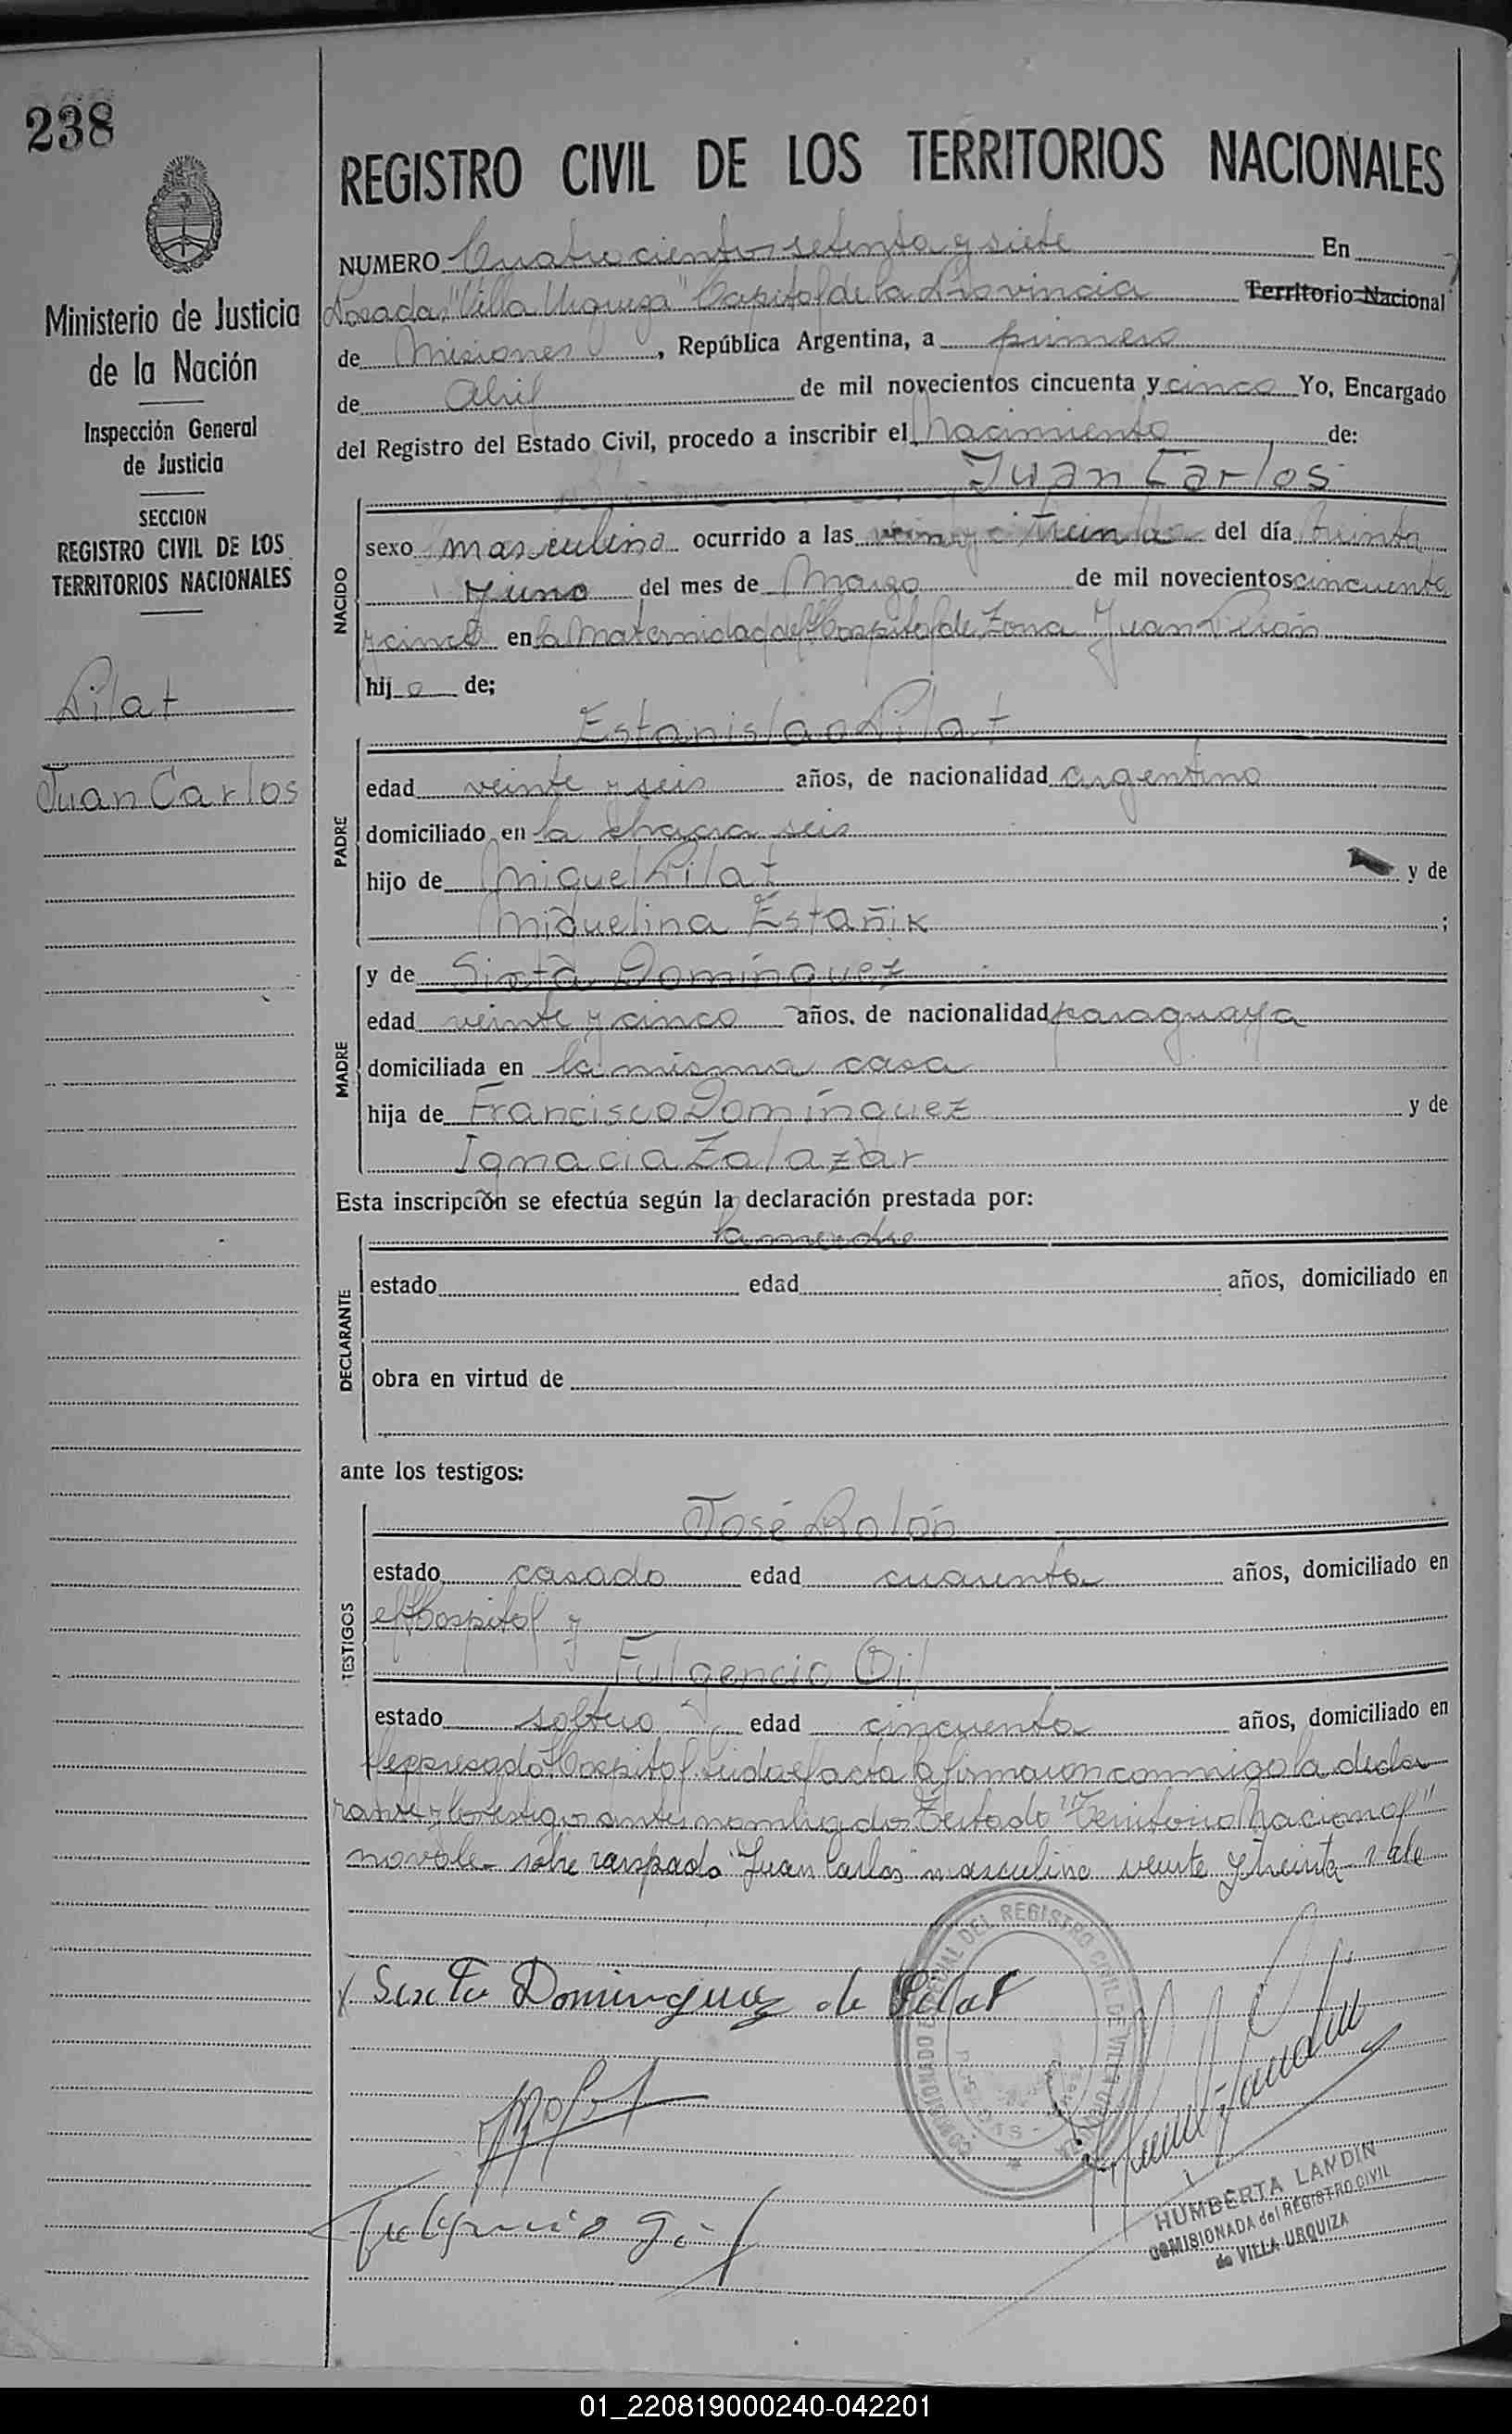 238
REGISTRO CIVIL DE LOS TERRITORIOS NACIONALES
NUMERO Cuatrocientos setenta y siete En
Posadas "Villa Urquiza" Capital de la Provincia Territorio Nacional
de Misiones, República Argentina, a primero
de Abril de mil novecientos cincuenta y cinco Yo, Encargado
del Registro del Estado Civil, procedo a inscribir el Nacimiento de:
Juan Carlos
sexo masculino ocurrido a las treinta del día treinta
y uno del mes de Marzo de mil novecientos cincuenta
y cinco en la Maternidad del Hospital de Zona Juan Perón
hijo de;
NACIDO
Estanislao Pilat
edad veinte y seis años, de nacionalidad argentino
domiciliado en la chacra seis
hijo de Miguel Pilat y de
Miguelina Estañik ;
PADRE
y de Sixta Domínguez
edad veinte y cinco años, de nacionalidad paraguaya
domiciliada en la misma casa
hija de Francisco Domínguez y de
Ignacia Zalazar
MADRE
Esta inscripción se efectúa según la declaración prestada por:
la madre
estado edad años, domiciliado en
obra en virtud de
DECLARANTE
ante los testigos:
José Rolón
estado casado edad cuarenta años, domiciliado en
el Hospital y
Fulgencio Gil
estado soltero edad cincuenta años, domiciliado en
TESTIGOS
el expresado Hospital Leida el acta la firmaron conmigo la decla
rante y los testigos antes nombrados Testado "Territorio Nacional"
no vale - sobre raspado "Juan Carlos" masculino veinte y treinta - vale
Sixta Dominguez de Pilat
Fulgencio Gil
COMISIONADO ESPECIAL DEL REGISTRO CIVIL DE VILLA URQUIZA
HUMBERTA LANDIN
COMISIONADA del REGISTRO CIVIL
de VILLA URQUIZA
Ministerio de Justicia
de la Nación
Inspección General
de Justicia
SECCION
REGISTRO CIVIL DE LOS
TERRITORIOS NACIONALES
Pilat
Juan Carlos
01_220819000240-042201